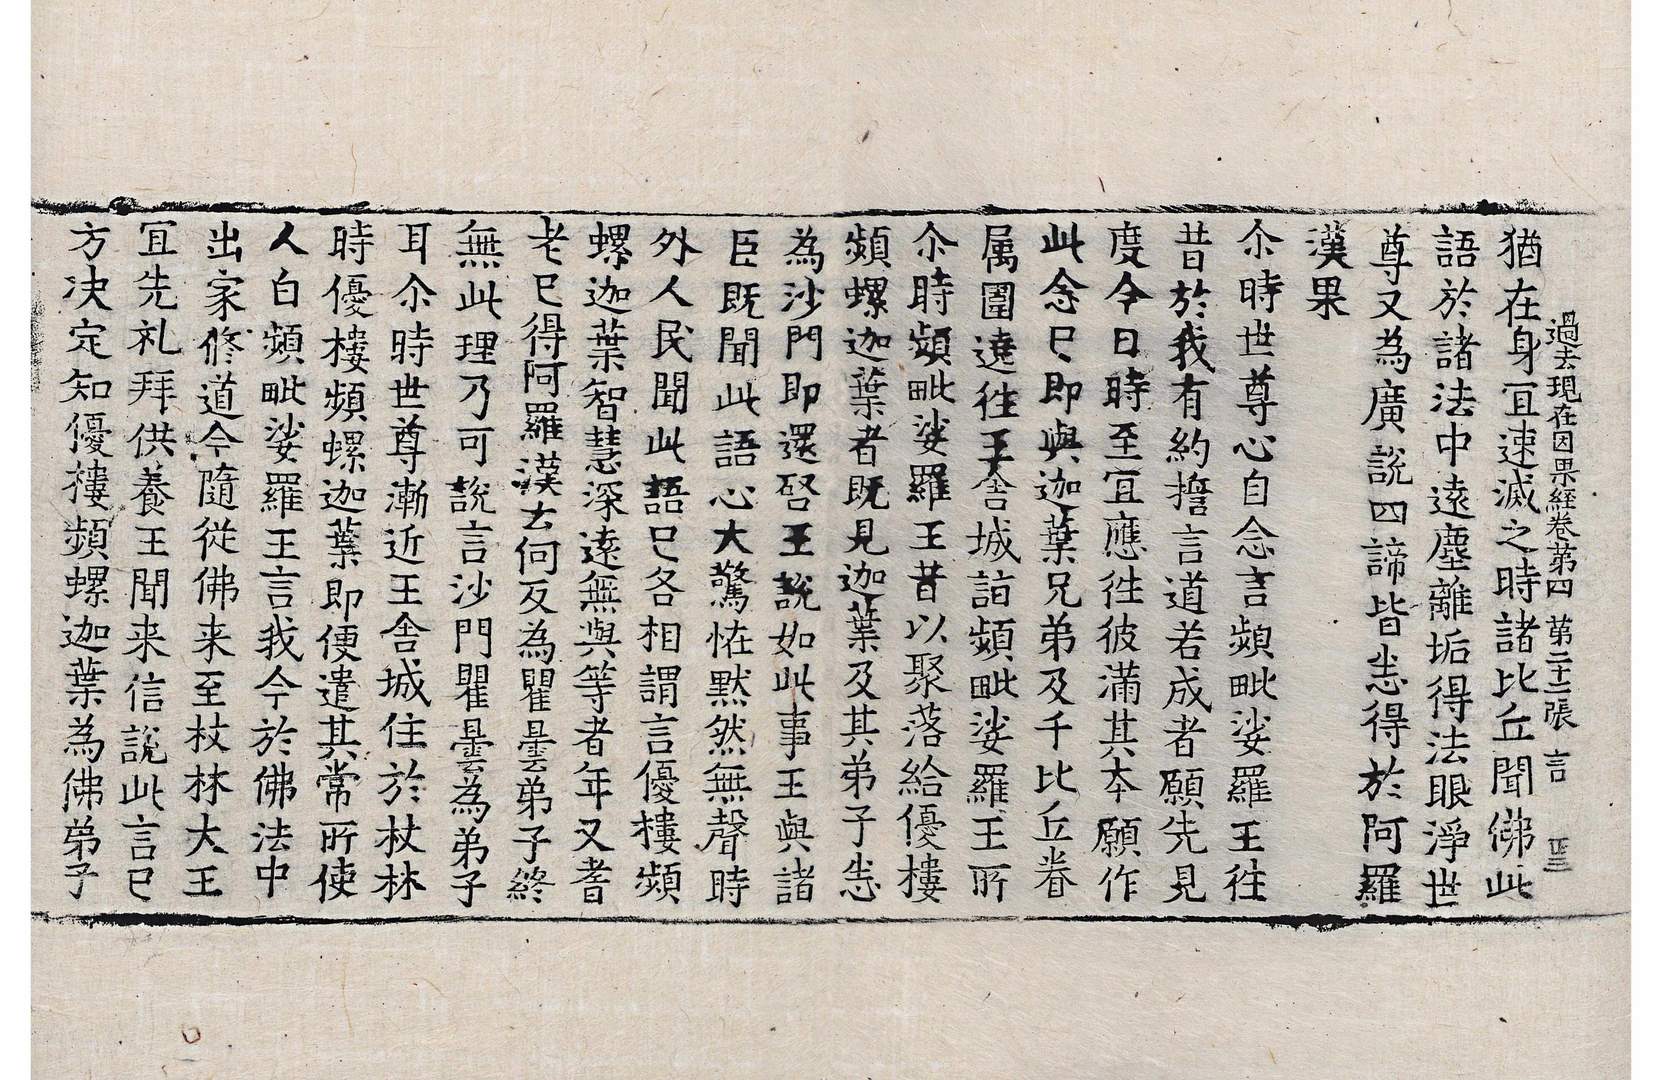 過去現在因果經卷第四 第二十三張 言
猶在身宜速滅之時諸比丘聞佛此
語於諸法中遠塵離垢得法眼淨世
尊又為廣說四諦皆悉得於阿羅
漢果
尒時世尊心自念言頻毗娑羅王往
昔於我有約擔言道若成者願先見
度今日時至宜應徃彼滿其本願作
此念已即與迦葉兄弟及千比丘眷
属圍遶徃王舍城詣頻毗娑羅王所
尒時頻毗娑羅王昔以聚落給優樓
頻螺迦葉者既見迦葉及其弟子悉
為沙門即還啓王說如此事王與諸
臣既聞此語心大驚恠默然無聲時
外人民聞此語已各相謂言優樓頻
螺迦葉智慧深遠無與等者年又耆
老已得阿羅漢云何反為瞿曇弟子終
無此理乃可說言沙門瞿曇為弟子
耳尒時世尊漸近王舍城住於杖林
時優樓頻螺迦葉即便遣其常所使
人白頻毗娑羅王言我今於佛法中
出家修道今隨從佛来至杖林大王
宜先礼拜供養王聞来信說此言已
方决定知優樓頻螺迦葉為佛弟子